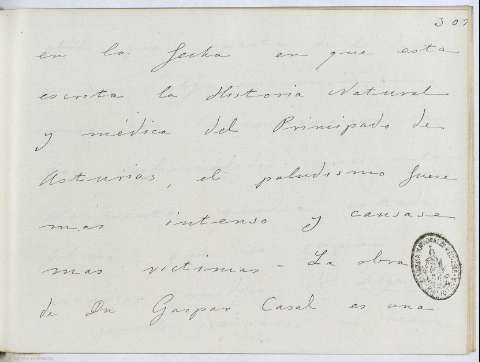 307
en la fecha en que esta
escrita la Historia Natural
y médica del Principado de
Asturias, el paludismo fuese
mas intenso y causase
mas victimas - La obra
de Dn Gaspar Casal es una